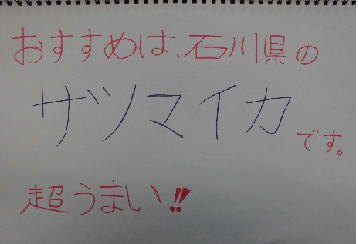 おすすめは、石川県の
サツマイカ
です。
超うまい!!